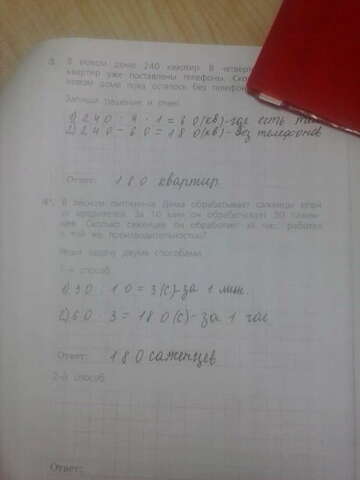 3. В новом доме 240 квартир. В четверт
квартир уже поставлены телефоны. Ско
новом доме пока осталось без телефон
Запиши решение и ответ.
1) 240 : 4 · 1 = 60 (кв) - где есть тел
2) 240 - 60 = 180 (кв) - без телефонов
Ответ: 180 квартир
4*. В лесном питомнике Дима обрабатывает саженцы ели
от вредителей. За 10 мин он обрабатывает 30 сажен-
цев. Сколько саженцев он обработает за час, работая
с той же производительностью?
Реши задачу двумя способами.
1-й способ.
1) 30 : 10 = 3 (с) - за 1 мин.
2) 60 · 3 = 180 (с) - за 1 час
Ответ: 180 саженцев
2-й способ.
Ответ: